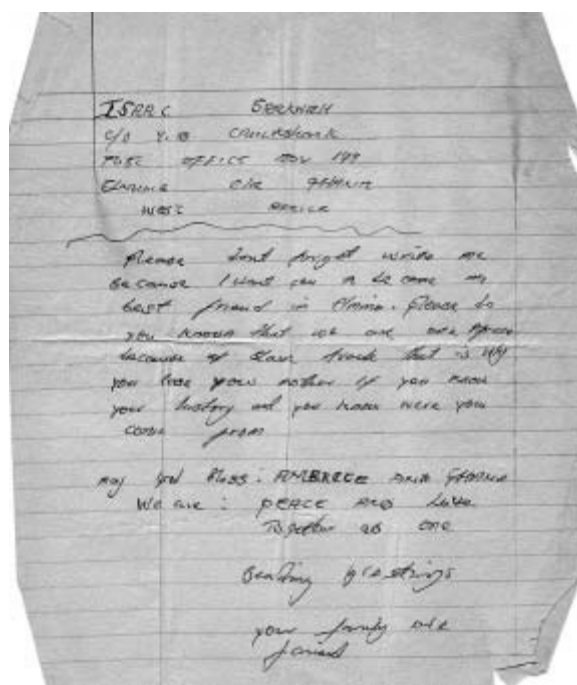 ISAAC
C/O Y.B CRUICKSHANK
POST OFFICE BOX 179
ELMINA C/R GHANA
WEST AFRICA
Please dont forget write me
because I want you to be come my
best friend in Elmina. Please do
you known that we are one
because of Slave trade that is why
you lose your mother if you know
your history and you know were you
come from
may god Bless: AND GHANA
We are: PEACE AND Love
Together as one
Sending greetings
your family and
friend